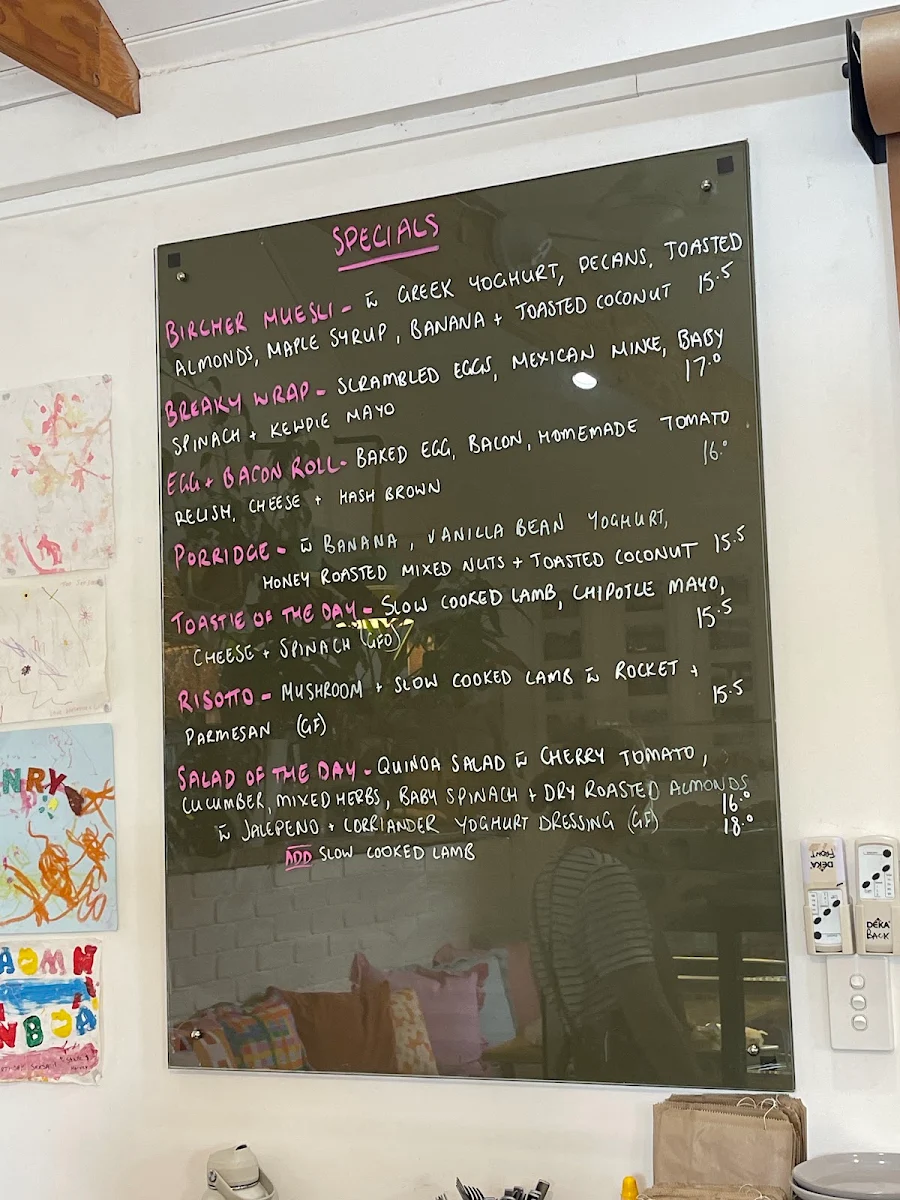 SPECIALS
BIRCHER MUESLI - w̄ GREEK YOGHURT, PECANS, TOASTED
ALMONDS, MAPLE SYRUP, BANANA + TOASTED COCONUT 15.5
BREAKY WRAP - SCRAMBLED EGGS, MEXICAN MINCE, BABY
SPINACH + KEWPIE MAYO 17.0
EGG + BACON ROLL - BAKED EGG, BACON, HOMEMADE TOMATO
RELISH, CHEESE + HASH BROWN 16.0
PORRIDGE - w̄ BANANA, VANILLA BEAN YOGHURT,
HONEY ROASTED MIXED NUTS + TOASTED COCONUT 15.5
TOASTIE OF THE DAY - SLOW COOKED LAMB, CHIPOTLE MAYO,
CHEESE + SPINACH (GFO) 15.5
RISOTTO - MUSHROOM + SLOW COOKED LAMB w̄ ROCKET +
PARMESAN (GF) 15.5
SALAD OF THE DAY - QUINOA SALAD w̄ CHERRY TOMATO,
CUCUMBER, MIXED HERBS, BABY SPINACH + DRY ROASTED ALMONDS
w̄ JALEPENO + CORRIANDER YOGHURT DRESSING (GF) 16.0
ADD SLOW COOKED LAMB 18.0
NRY
DEKA FRONT
DEKA BACK